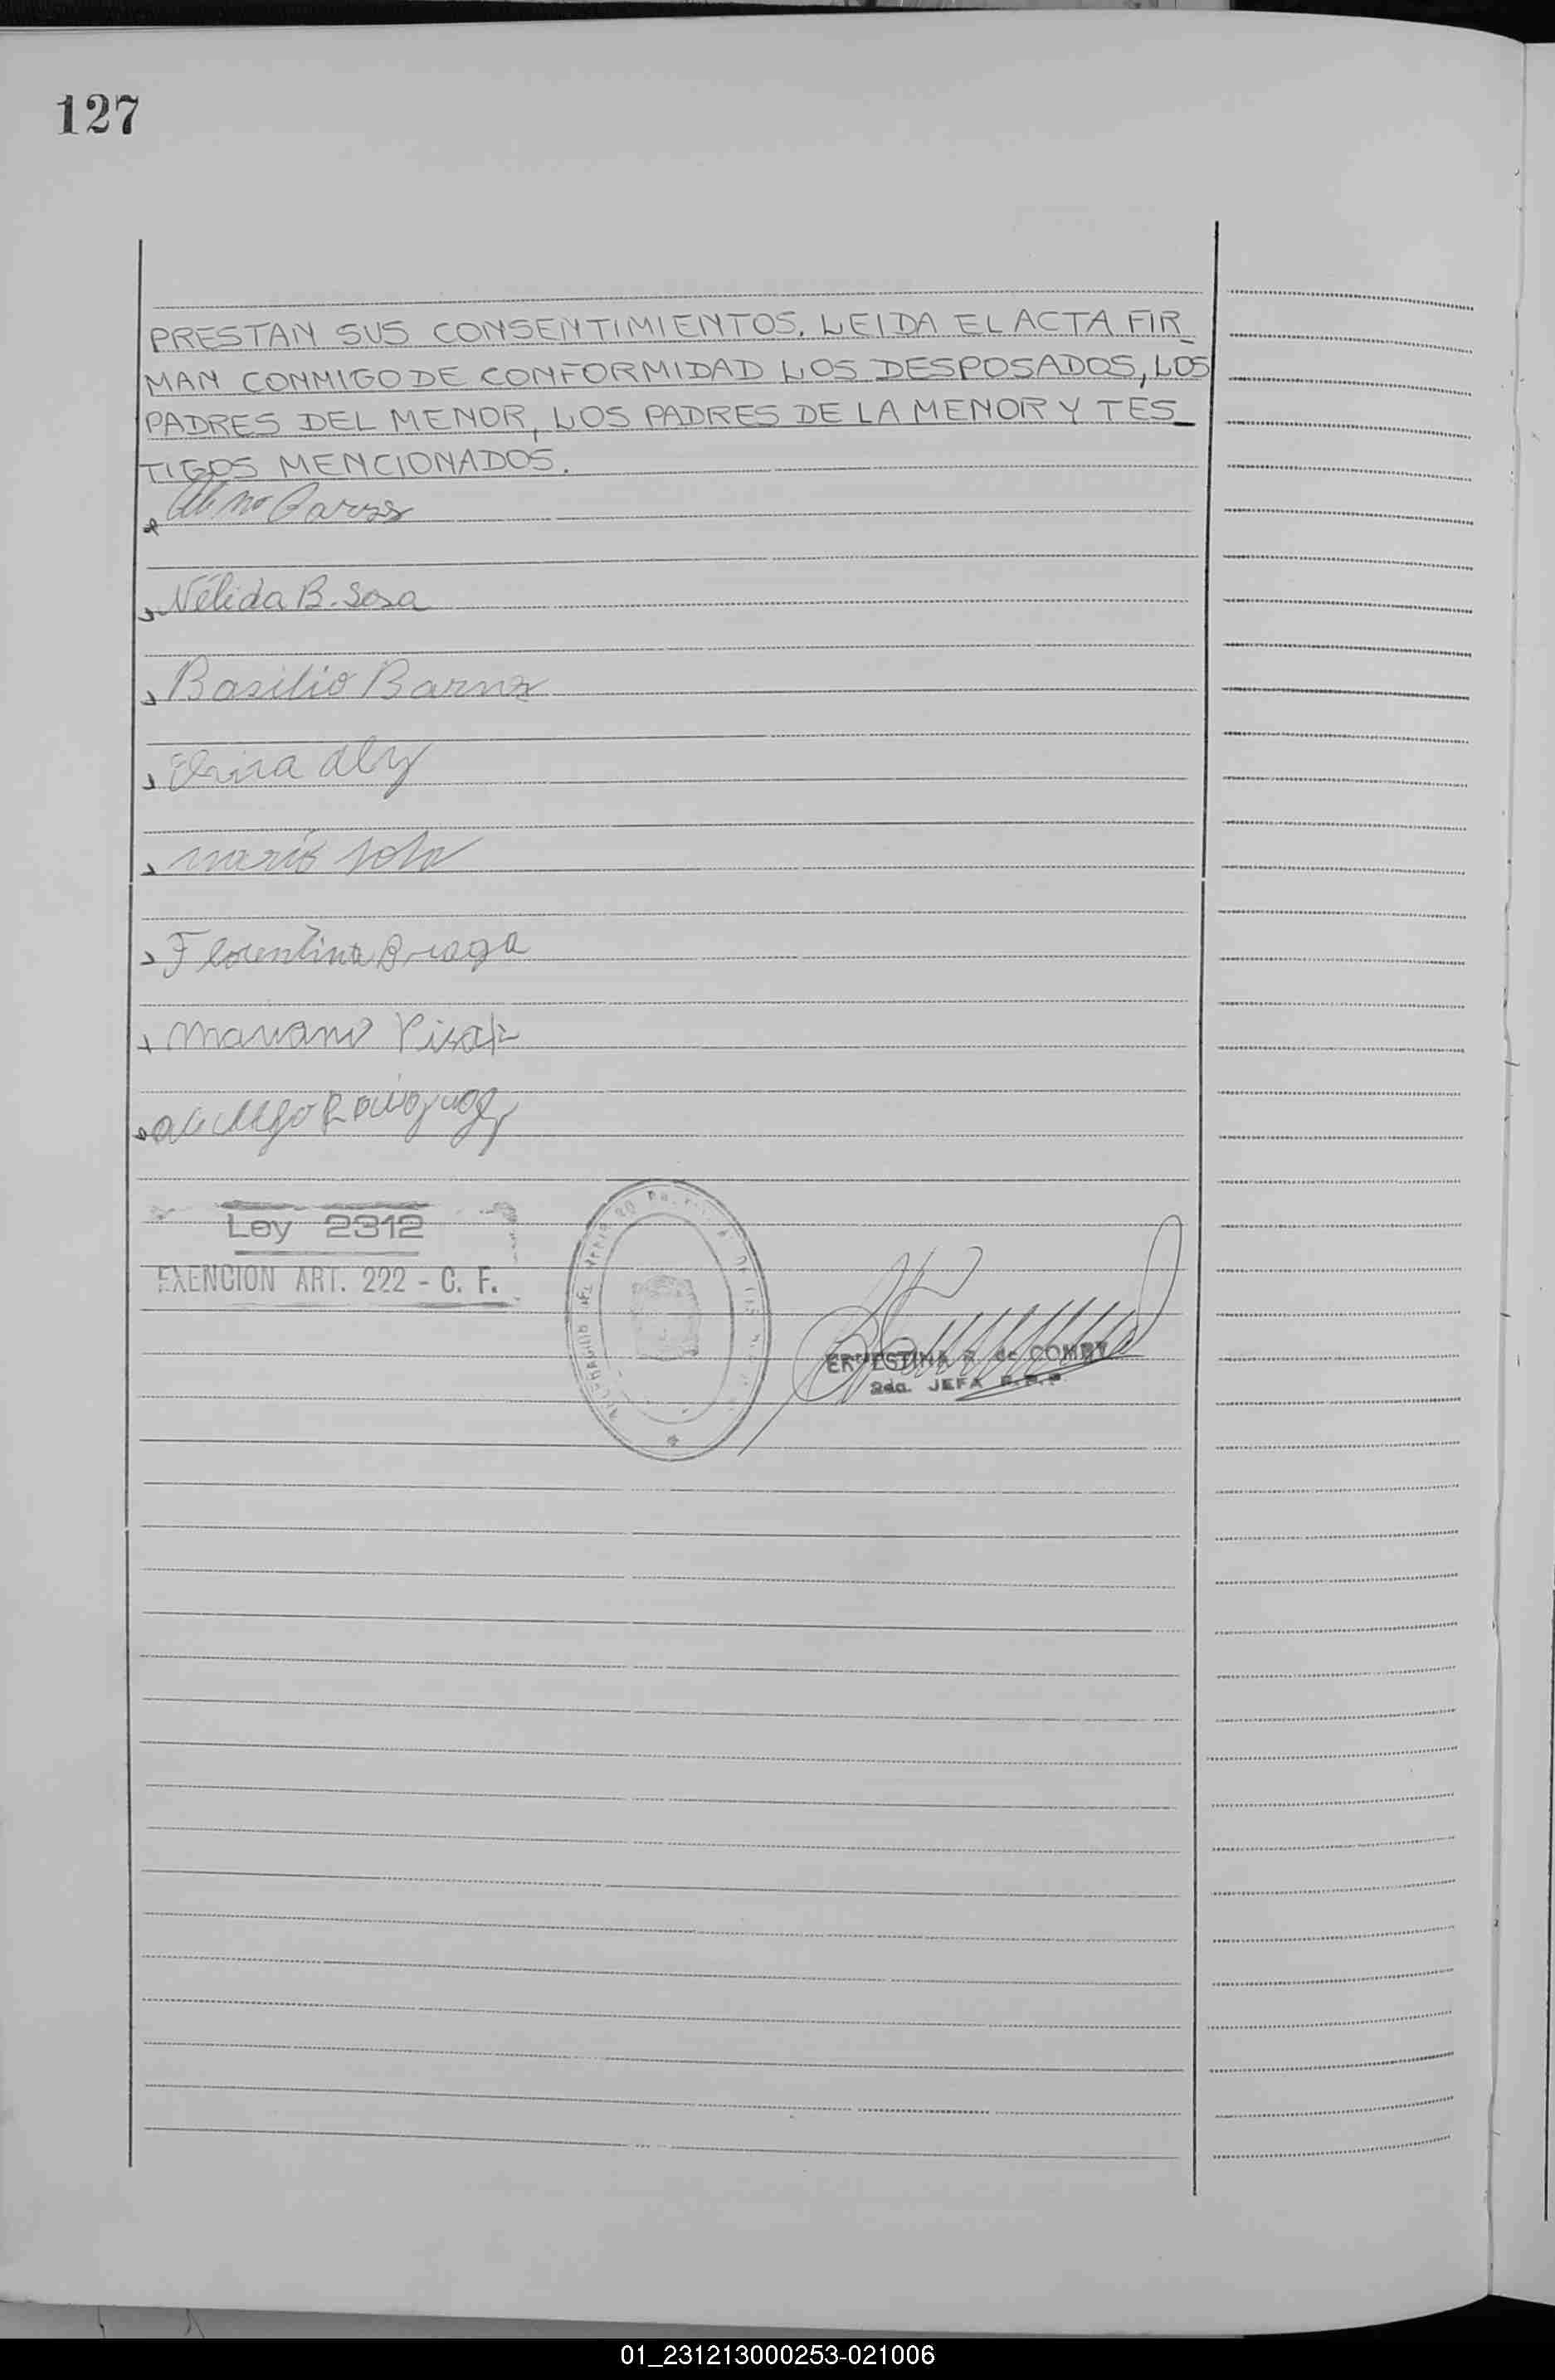 127
PRESTAN SUS CONSENTIMIENTOS. LEIDA EL ACTA FIR_
MAN CONMIGO DE CONFORMIDAD LOS DESPOSADOS, LOS
PADRES DEL MENOR, LOS PADRES DE LA MENOR Y TES_
TIGOS MENCIONADOS.
Nélida B. Sosa
Basilio
Mario
Florentina Braga
Mariano
Ley 2312
EXENCION ART. 222 - C. F.
ERNESTINA R. de
2da. JEFA
01_231213000253-021006